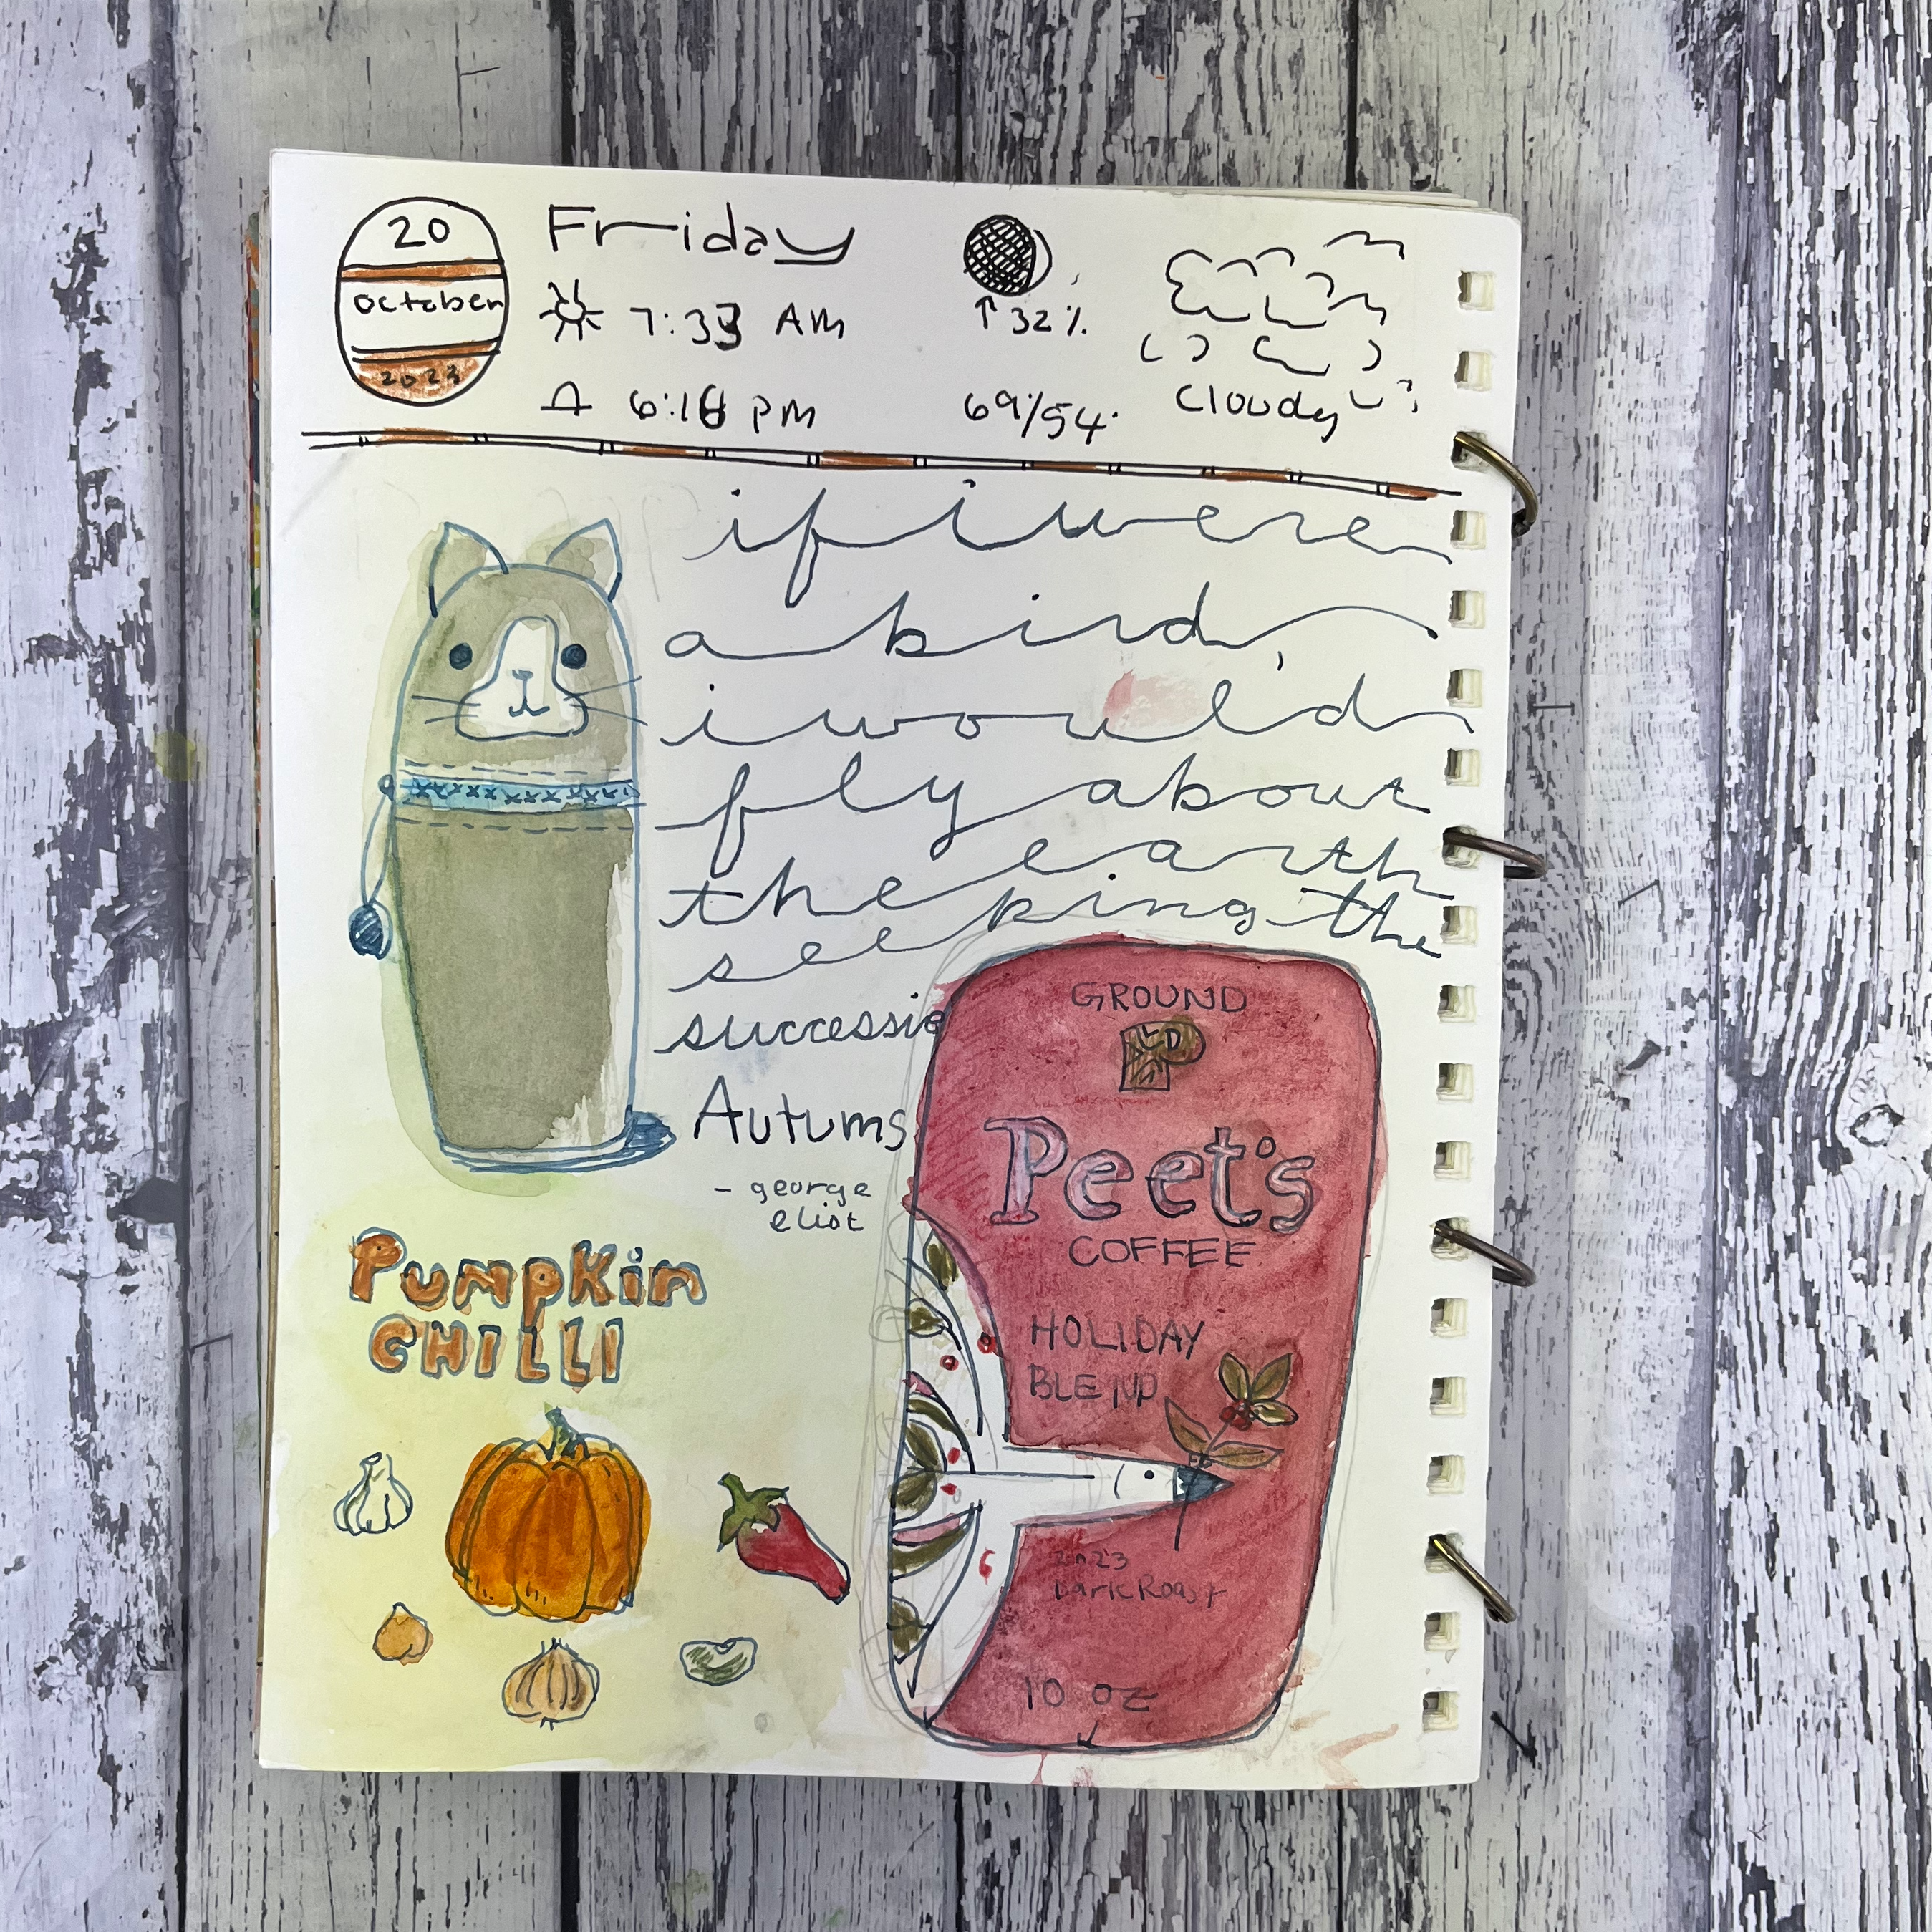 20
October
2023
Friday
7:33 AM
6:16 PM
↑32%
69/54
Cloudy
if i were
a bird,
i would
fly about
the earth
seeking the
successive
Autums
- george
eliot
GROUND
Peet's
COFFEE
HOLIDAY
BLEND
2023
Dark Roast
10 OZ
PumpKin
CHILLI